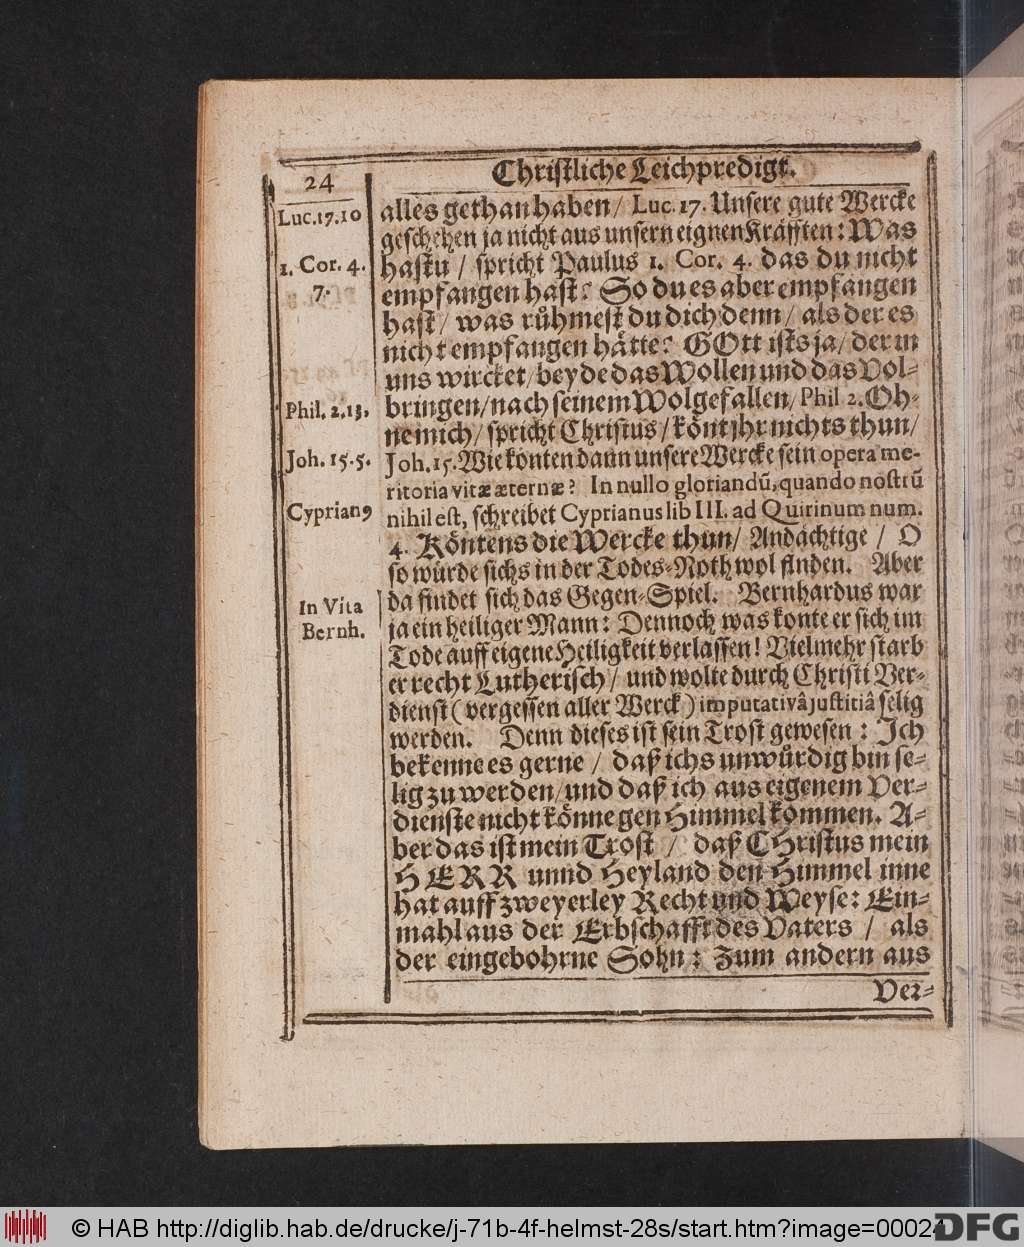 24
Christliche Leichpredigt.
Luc.17.10
1. Cor. 4.
7.
Phil. 2.13.
Joh. 15.5.
Cyprianꝰ
In Vita
Bernh.
alles gethan haben/ Luc. 17. Unsere gute Wercke
geschehen ja nicht aus unsern eignen Kräfften: Was
hastu / spricht Paulus 1. Cor. 4. das du nicht
empfangen hast? So du es aber empfangen
hast/ was růhmest du dich denn/ als der es
nicht empfangen hätte? GOtt ists ja/ der in
uns wircket/ beyde das Wollen und das Vol-
bringen/ nach seinem Wolgefallen/ Phil 2. Oh-
ne mich/ spricht Christus/ könt jhr nichts thun/
Joh. 15. Wie konten dann unsere Wercke sein opera me-
ritoria vitæ æternæ? In nullo gloriandũ, quando nostrũ
nihil est, schreibet Cyprianus lib III. ad Quirinum num.
4. Köntens die Wercke thun/ Andächtige / O
so würde sichs in der Todes-Noth wol finden. Aber
da findet sich das Gegen-Spiel. Bernhardus war
ja ein heiliger Mann: Dennoch was konte er sich im
Tode auff eigene Heiligkeit verlassen! Vielmehr starb
er recht Lutherisch/ und wolte durch Christi Ver-
dienst (vergessen aller Werck) imputativâ justitiâ selig
werden. Denn dieses ist sein Trost gewesen: Ich
bekenne es gerne / daß ichs unwůrdig bin se-
lig zu werden/ und daß ich aus eigenem Ver-
dienste nicht könne gen Himmel kommen. A-
ber das ist mein Trost / daß CHristus mein
HERR unnd Heyland den Himmel inne
hat auff zweyerley Recht und Weyse: Ein-
mahl aus der Erbschafft des Vaters / als
der eingebohrne Sohn: Zum andern aus
Ver-
© HAB http://diglib.hab.de/drucke/j-71b-4f-helmst-28s/start.htm?image=00024
DFG